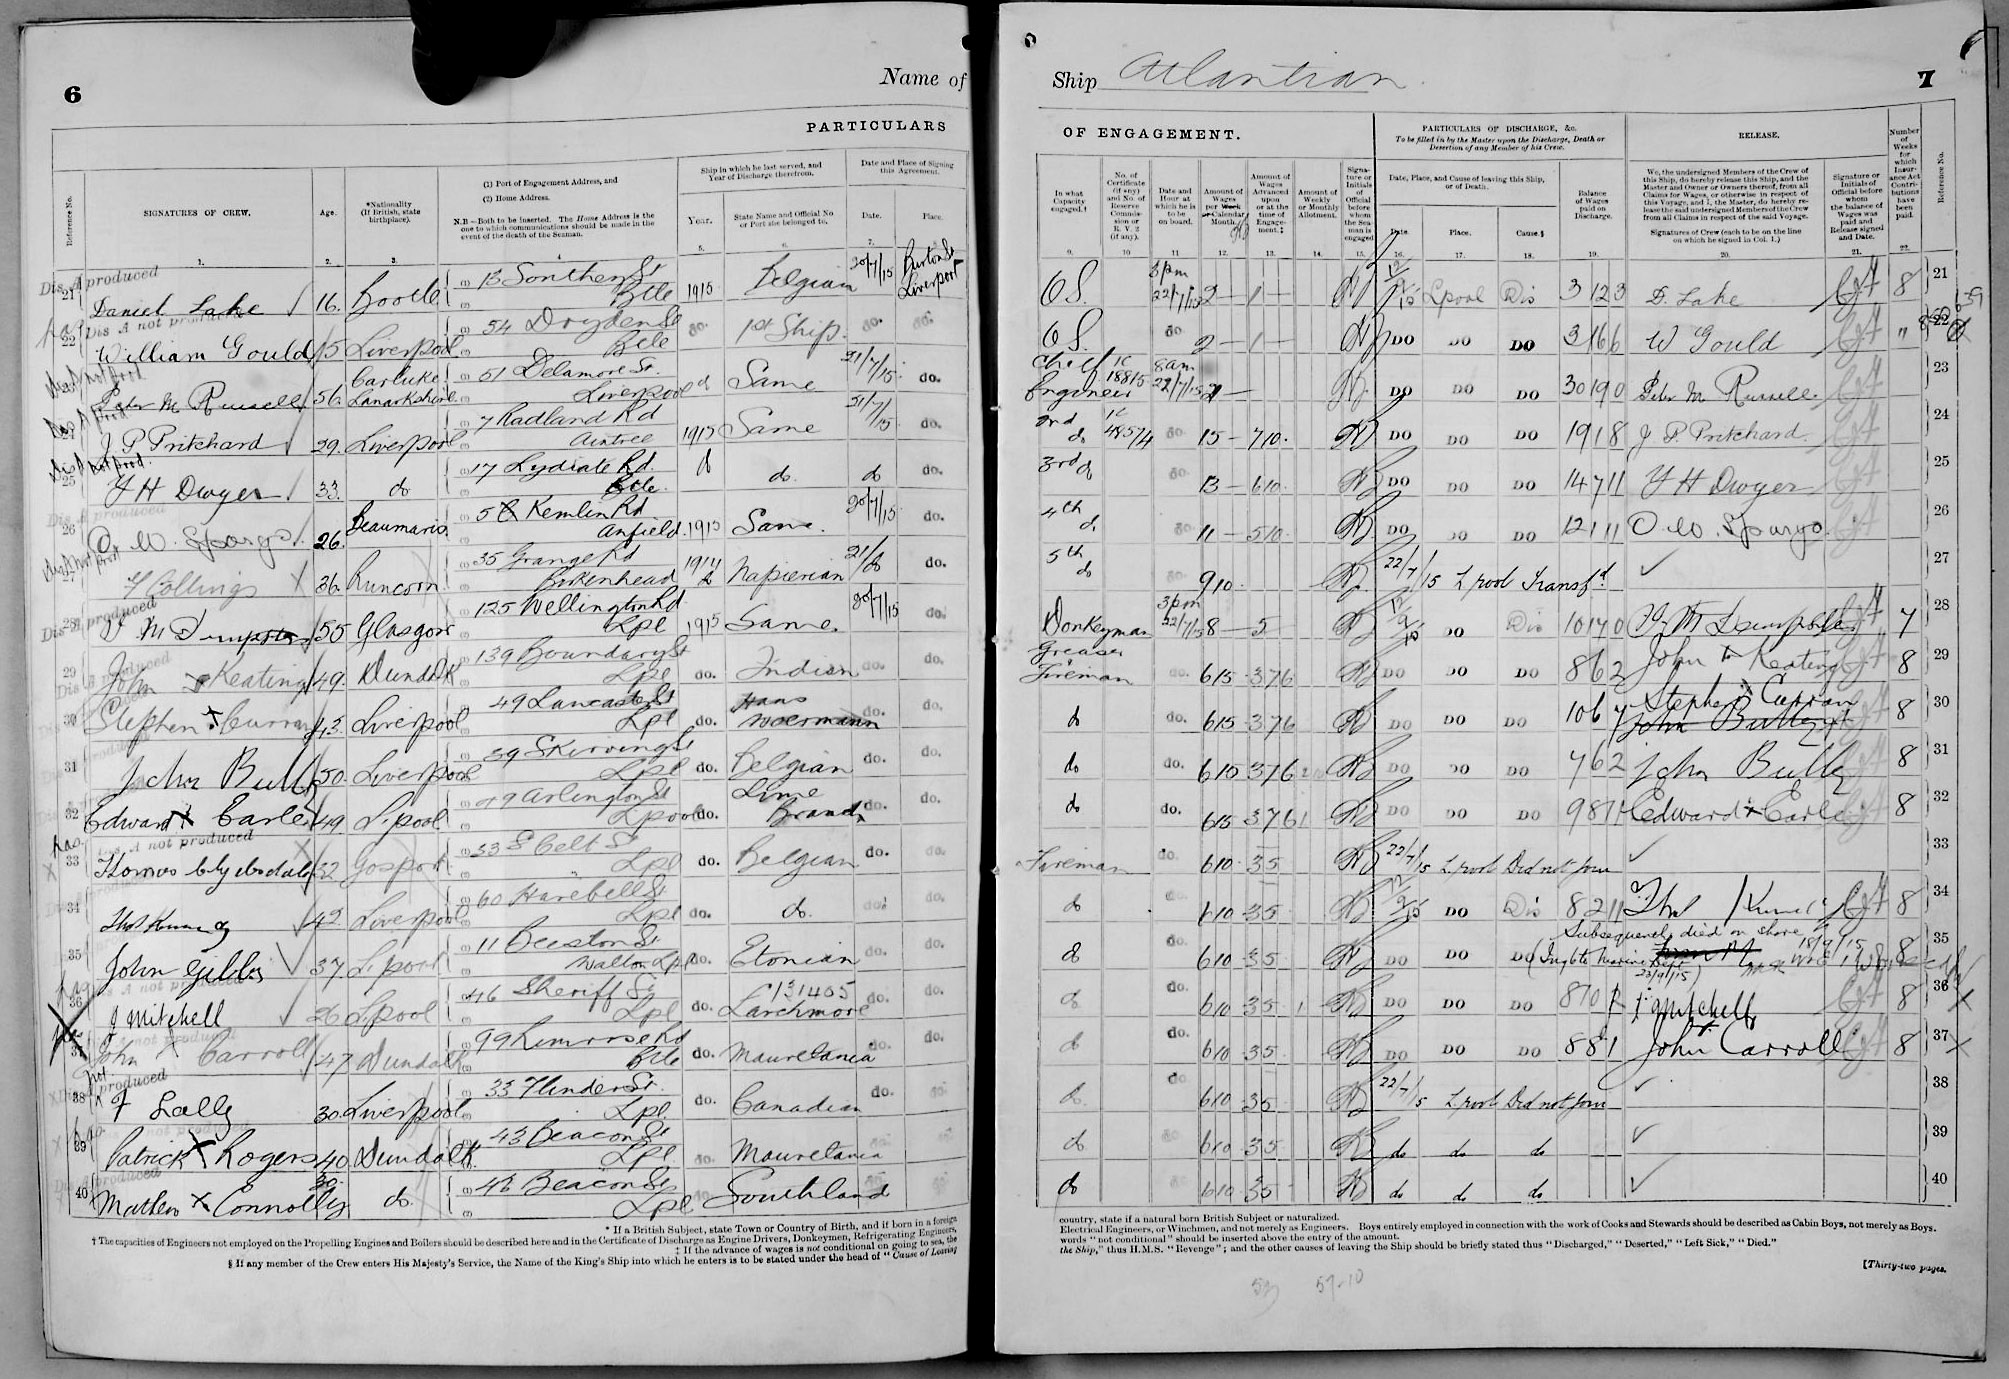 6
Name of
PARTICULARS
Reference No.
SIGNATURES OF CREW.
Age.
*Nationality (If British, state birthplace).
(1) Port of Engagement Address, and
(2) Home Address.
N.B.—Both to be inserted. The Home Address is the one to which communications should be made in the event of the death of the Seaman.
Ship in which he last served, and Year of Discharge therefrom.
Year.
State Name and Official No or Port she belonged to.
Date and Place of Signing this Agreement.
Date.
Place.
1. 2. 3. 4 5. 6. 7.
Dis A produced
21 Daniel Lake 16. Bootle (1) 13 Southey St (2) Btle 1915 Belgian 20/7/15 Burton St Liverpool
Dis A not produced
22 William Gould 15 Liverpool (1) 54 Dryden St (2) Btle do. 1st Ship. do. do.
Peter M Russell 56. Carluke Lanarkshire (1) 51 Delamore St. Liverpool Same 21/7/15 do.
J. P Pritchard 29. Liverpool (1) 7 Radland Rd Aintree 1915 Same 21/7/15 do.
25 H Dwyer 33. do (1) 17 Lydiate Rd. Btle do. do do.
Dis A produced
26 O. W. Spargo 26. Beaumaris (1) Kemlin Rd Anfield. 1915 Same. 20/7/15 do.
Collings X 36. Runcorn (1) 35 Grange Rd Birkenhead 1914 Napierian 21/ do do.
Dis A produced
28 55 Glasgow (1) 125 Wellington Rd (2) Lpl 1915 Same. 20/7/15 do.
29 John X Keating 49. Dundalk (1) 139 Boundary St Lpl do. Indian do. do.
30 Stephen X Curran 43. Liverpool 49 Lancaster St Lpl do. Hans Woermann do. do.
31 John Bully 50. Liverpool 39 Skirving St Lpl do. Belgian do. do.
32 Edward X Earle 49 L.pool 49 Arlington St Lpool do. Lime Branch do. do.
Dis A not produced
33 Thomas 32 Gosport (1) 33 Celt St Lpl do. Belgian do. do.
34 42. Liverpool (1) 60 Harebell St Lpl do. do. do. do.
35 John Gibbs 37 L.pool (1) 11 Beeston St Walton Lpl do. Etonian do. do.
A not produced
36 J Mitchell 26 L.pool (1) 46 Sheriff St Lpl do. 131405 Larchmore do. do.
A not produced
37 John X Carroll 47 Dundalk (1) 99 Rimrose Rd Btle do. Mauretania do. do.
38 F Lally 30. Liverpool (1) 33 Flinder St. Lpl. do. Canadian do. do.
39 Patrick X Rogers 40 Dundalk (1) 43 Beacon St Lpl do. Mauretania do.
40 Mathew X Connolly 30. do. (1) 42 Beacon St Lpl do. Southland
* If a British Subject, state Town or Country of Birth, and if born in a foreign
† The capacities of Engineers not employed on the Propelling Engines and Boilers should be described here and in the Certificate of Discharge as Engine Drivers, Donkeymen, Refrigerating Engineers,
‡ If the advance of wages is not conditional on going to sea, the
§ If any member of the Crew enters His Majesty's Service, the Name of the King's Ship into which he enters is to be stated under the head of "Cause of Leaving
Ship Atlantian
7
OF ENGAGEMENT.
PARTICULARS OF DISCHARGE, &c.
To be filled in by the Master upon the Discharge, Death or Desertion of any Member of his Crew.
RELEASE.
In what Capacity engaged.†
No. of Certificate (if any) and No. of Reserve Commission or R. V. 2 (if any).
Date and Hour at which he is to be on board.
Amount of Wages per Week or Calendar Month.
Amount of Wages Advanced upon or at the time of Engagement.‡
Amount of Weekly or Monthly Allotment.
Signature or Initials of Official before whom the Seaman is engaged
Date, Place, and Cause of leaving this Ship, or of Death.
Date. Place. Cause.§
Balance of Wages paid on Discharge.
We, the undersigned Members of the Crew of this Ship, do hereby release this Ship, and the Master and Owner or Owners thereof, from all Claims for Wages, or otherwise in respect of this Voyage, and I, the Master, do hereby release the said undersigned Members of the Crew from all Claims in respect of the said Voyage.
Signatures of Crew (each to be on the line on which he signed in Col. 1.)
Signature or Initials of Official before whom the balance of Wages was paid and Release signed and Date.
Number of Weeks for which Insurance Act Contributions have been paid.
Reference No.
9. 10 11 12. 13. 14. 15. 16. 17. 18. 19. 20. 21. 22.
OS. 3pm 22/7/15 2 — 1 — Lpool Dis 3 12 3 D. Lake 8 21
OS. do 2 — 1 — DO DO DO 3 16 6 W Gould " 22
Chief Engineer 18815 8am 22/7/15 DO DO DO 30 19 0 Peter M Russell 23
2nd do 48574 do 15 — 7 10. DO DO DO 19 1 8 J P. Pritchard 24
3rd do do 13 — 6 10. DO DO DO 14 7 11 H Dwyer 25
4th do. do 11 — 5 10. DO DO DO 12 1 11 O W. Spargo. 26
5th do do. 9 10. 22/7/15 L.pool Transfd ✓ 27
Donkeyman 3pm 22/7/15 8 — 5 DO Dis 10 17 0 7 28
Greaser Fireman do. 6 15 3 7 6 DO DO DO 8 6 2 John X Keating 8 29
do do. 6 15 3 7 6 DO DO DO 10 6 7 Stephen Curran 8 30
do do. 6 15 3 7 6 DO DO DO 7 6 2 John Bully 8 31
do do. 6 15 3 7 6 DO DO DO 9 8 Edward X Earle 8 32
Fireman do. 6 10 3 5 22/7/15 L.pool Did not join ✓ 33
do do. 6 10 3 5 DO Dis 8 2 11 8 34
do do. 6 10 3 5 DO DO DO Subsequently died on shore 18/9/15 8 35
do do. 6 10 3 5 DO DO DO 8 J Mitchell 8 36 X
do do. 6 10 3 5 DO DO DO 8 8 1 John Carroll 8 37 X
do do 6 10 3 5 22/7/15 L.pool Did not join ✓ 38
do do 6 10 3 5 do do do ✓ 39
do 6 10 3 5 do do do ✓ 40
country, state if a natural born British Subject or naturalized.
Electrical Engineers, or Winchmen, and not merely as Engineers. Boys entirely employed in connection with the work of Cooks and Stewards should be described as Cabin Boys, not merely as Boys.
words "not conditional" should be inserted above the entry of the amount.
the Ship," thus H.M.S. "Revenge"; and the other causes of leaving the Ship should be briefly stated thus "Discharged," "Deserted," "Left Sick," "Died."
[Thirty-two pages.